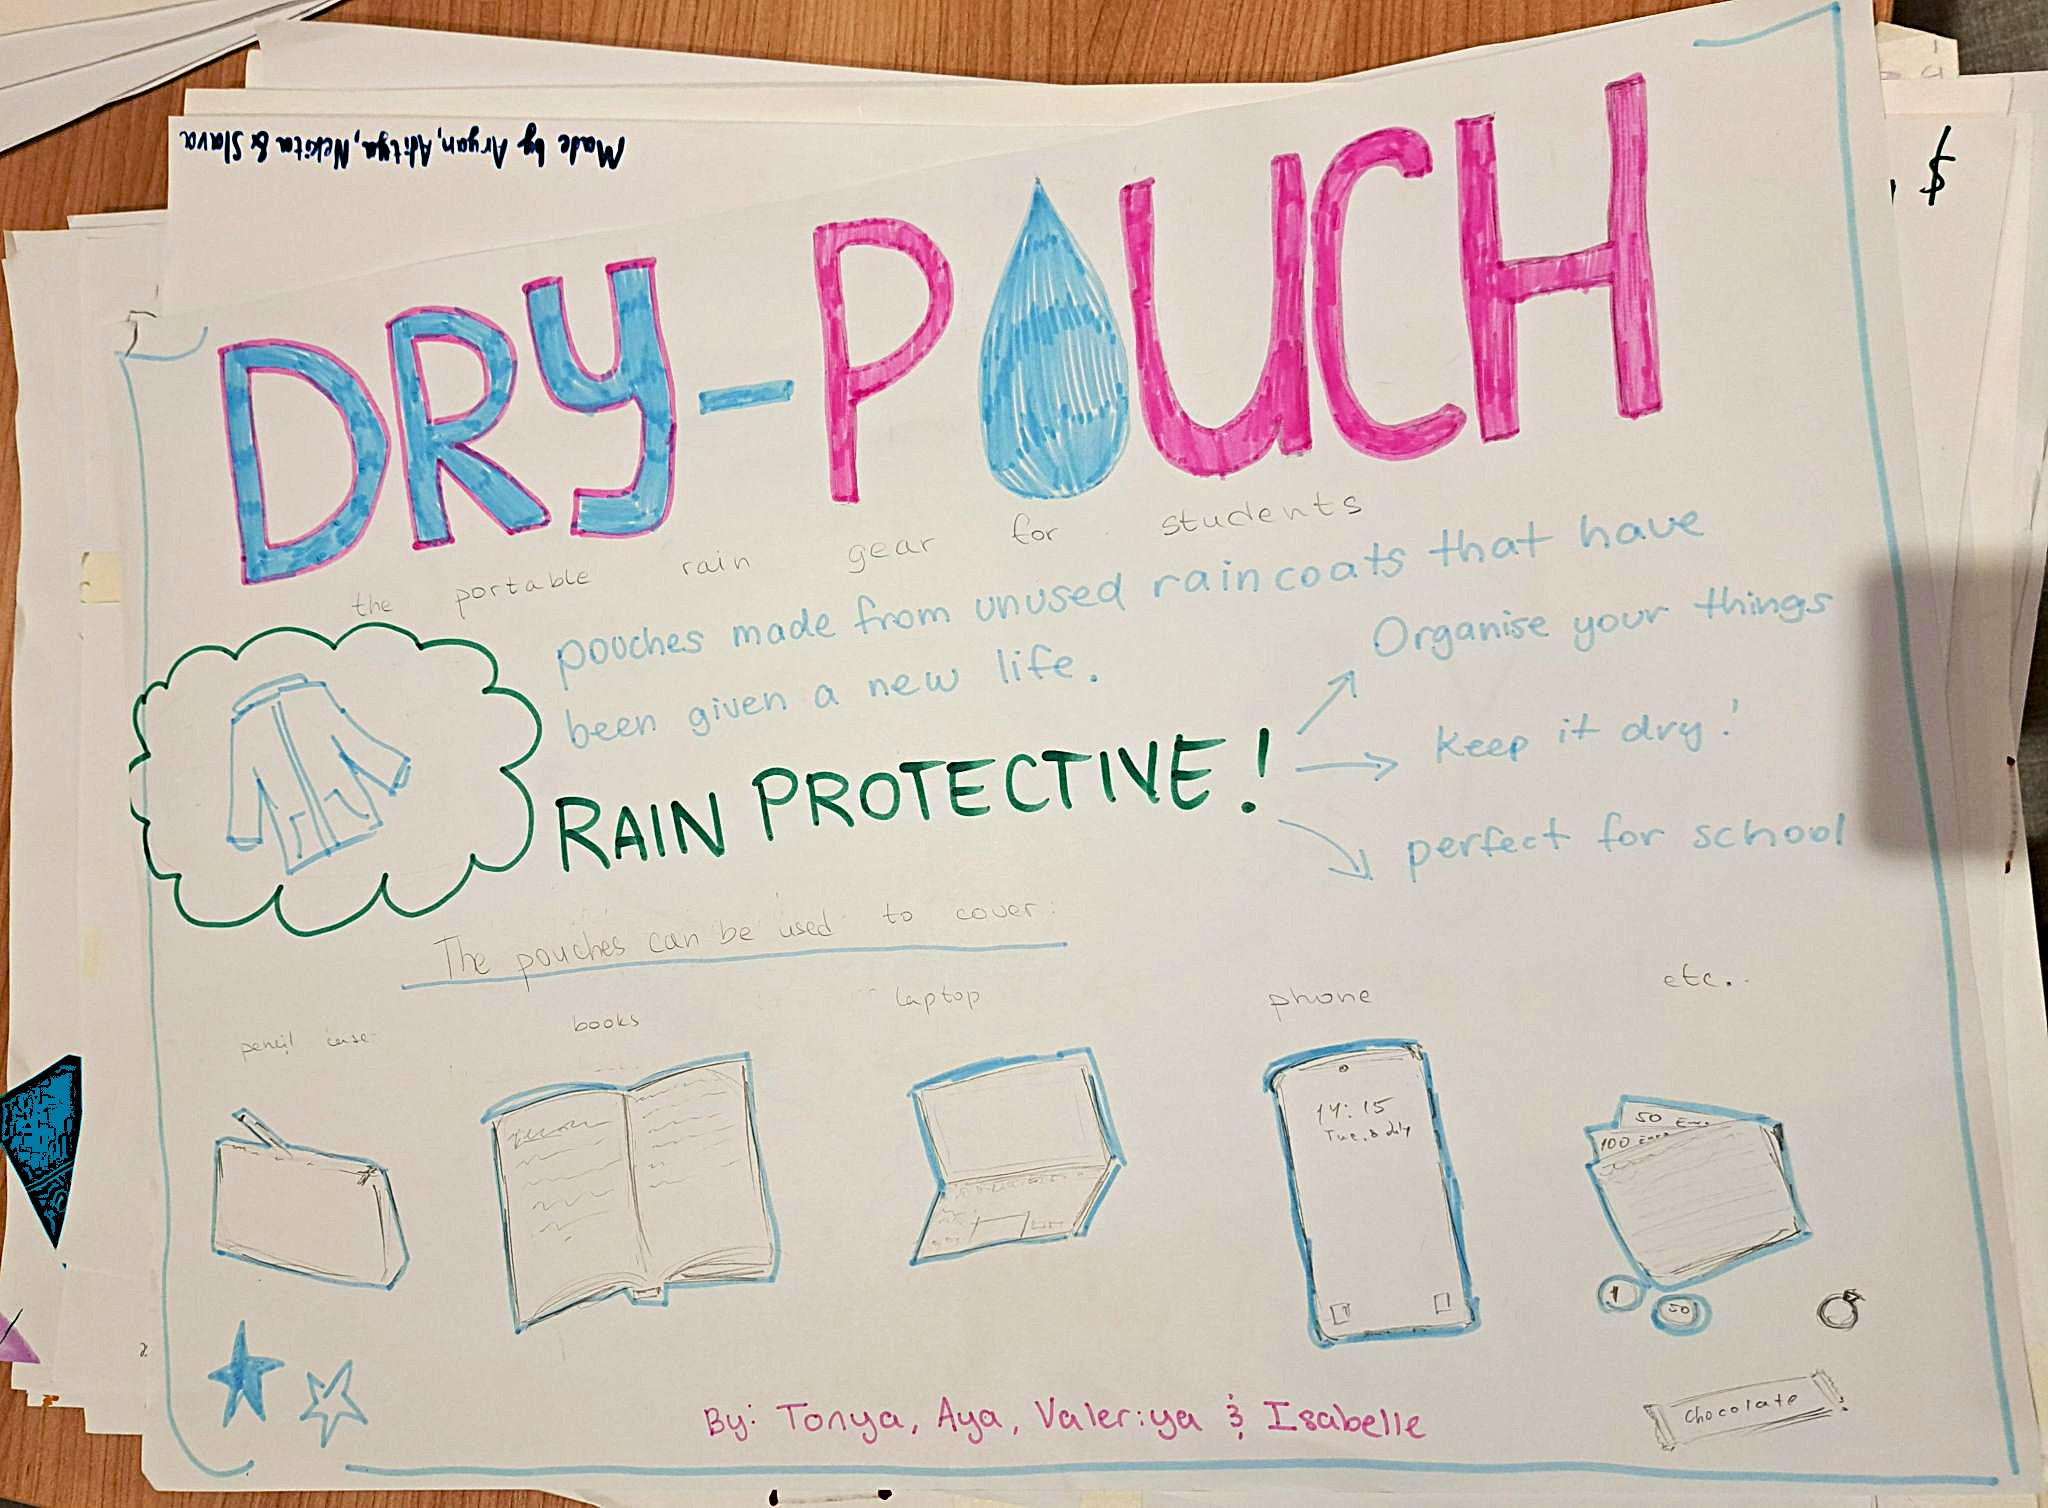 Made by Aryan, Aditya, Nekita & Slava
$
DRY-POUCH
the portable rain gear for students
pouches made from unused raincoats that have
been given a new life.
RAIN PROTECTIVE!
Organise your things
keep it dry!
perfect for school
The pouches can be used to cover:
pencil case
books
laptop
phone
etc..
14:15
Tue. 8 July
50 Euro
100 Euro
1
50
chocolate
By: Tonya, Aya, Valeriya & Isabelle